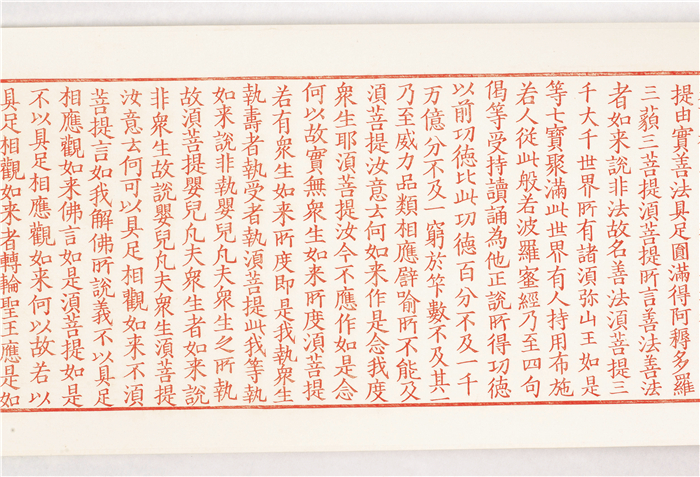 提由實善法具足圓滿得阿耨多羅
三藐三菩提須菩提所言善法善法
者如来說非法故名善法須菩提三
千大千世界所有諸須弥山王如是
等七寶聚滿此世界有人持用布施
若人從此般若波羅蜜經乃至四句
偈等受持讀誦為他正說所得功德
以前功德比此功德百分不及一千
万億分不及一窮於筭數不及其一
乃至威力品類相應譬喻所不能及
須菩提汝意云何如来作是念我度
衆生耶須菩提汝今不應作如是念
何以故實無衆生如来所度須菩提
若有衆生如来所度即是我執衆生
執壽者執受者執須菩提此我等執
如来說非執嬰兒凡夫衆生之所執
故須菩提嬰兒凡夫衆生者如来說
非衆生故說嬰兒凡夫衆生須菩提
汝意云何可以具足相觀如来不須
菩提言如我解佛所說義不以具足
相應觀如来佛言如是須菩提如是
不以具足相應觀如来何以故若以
具足相觀如来者轉輪聖王應是如